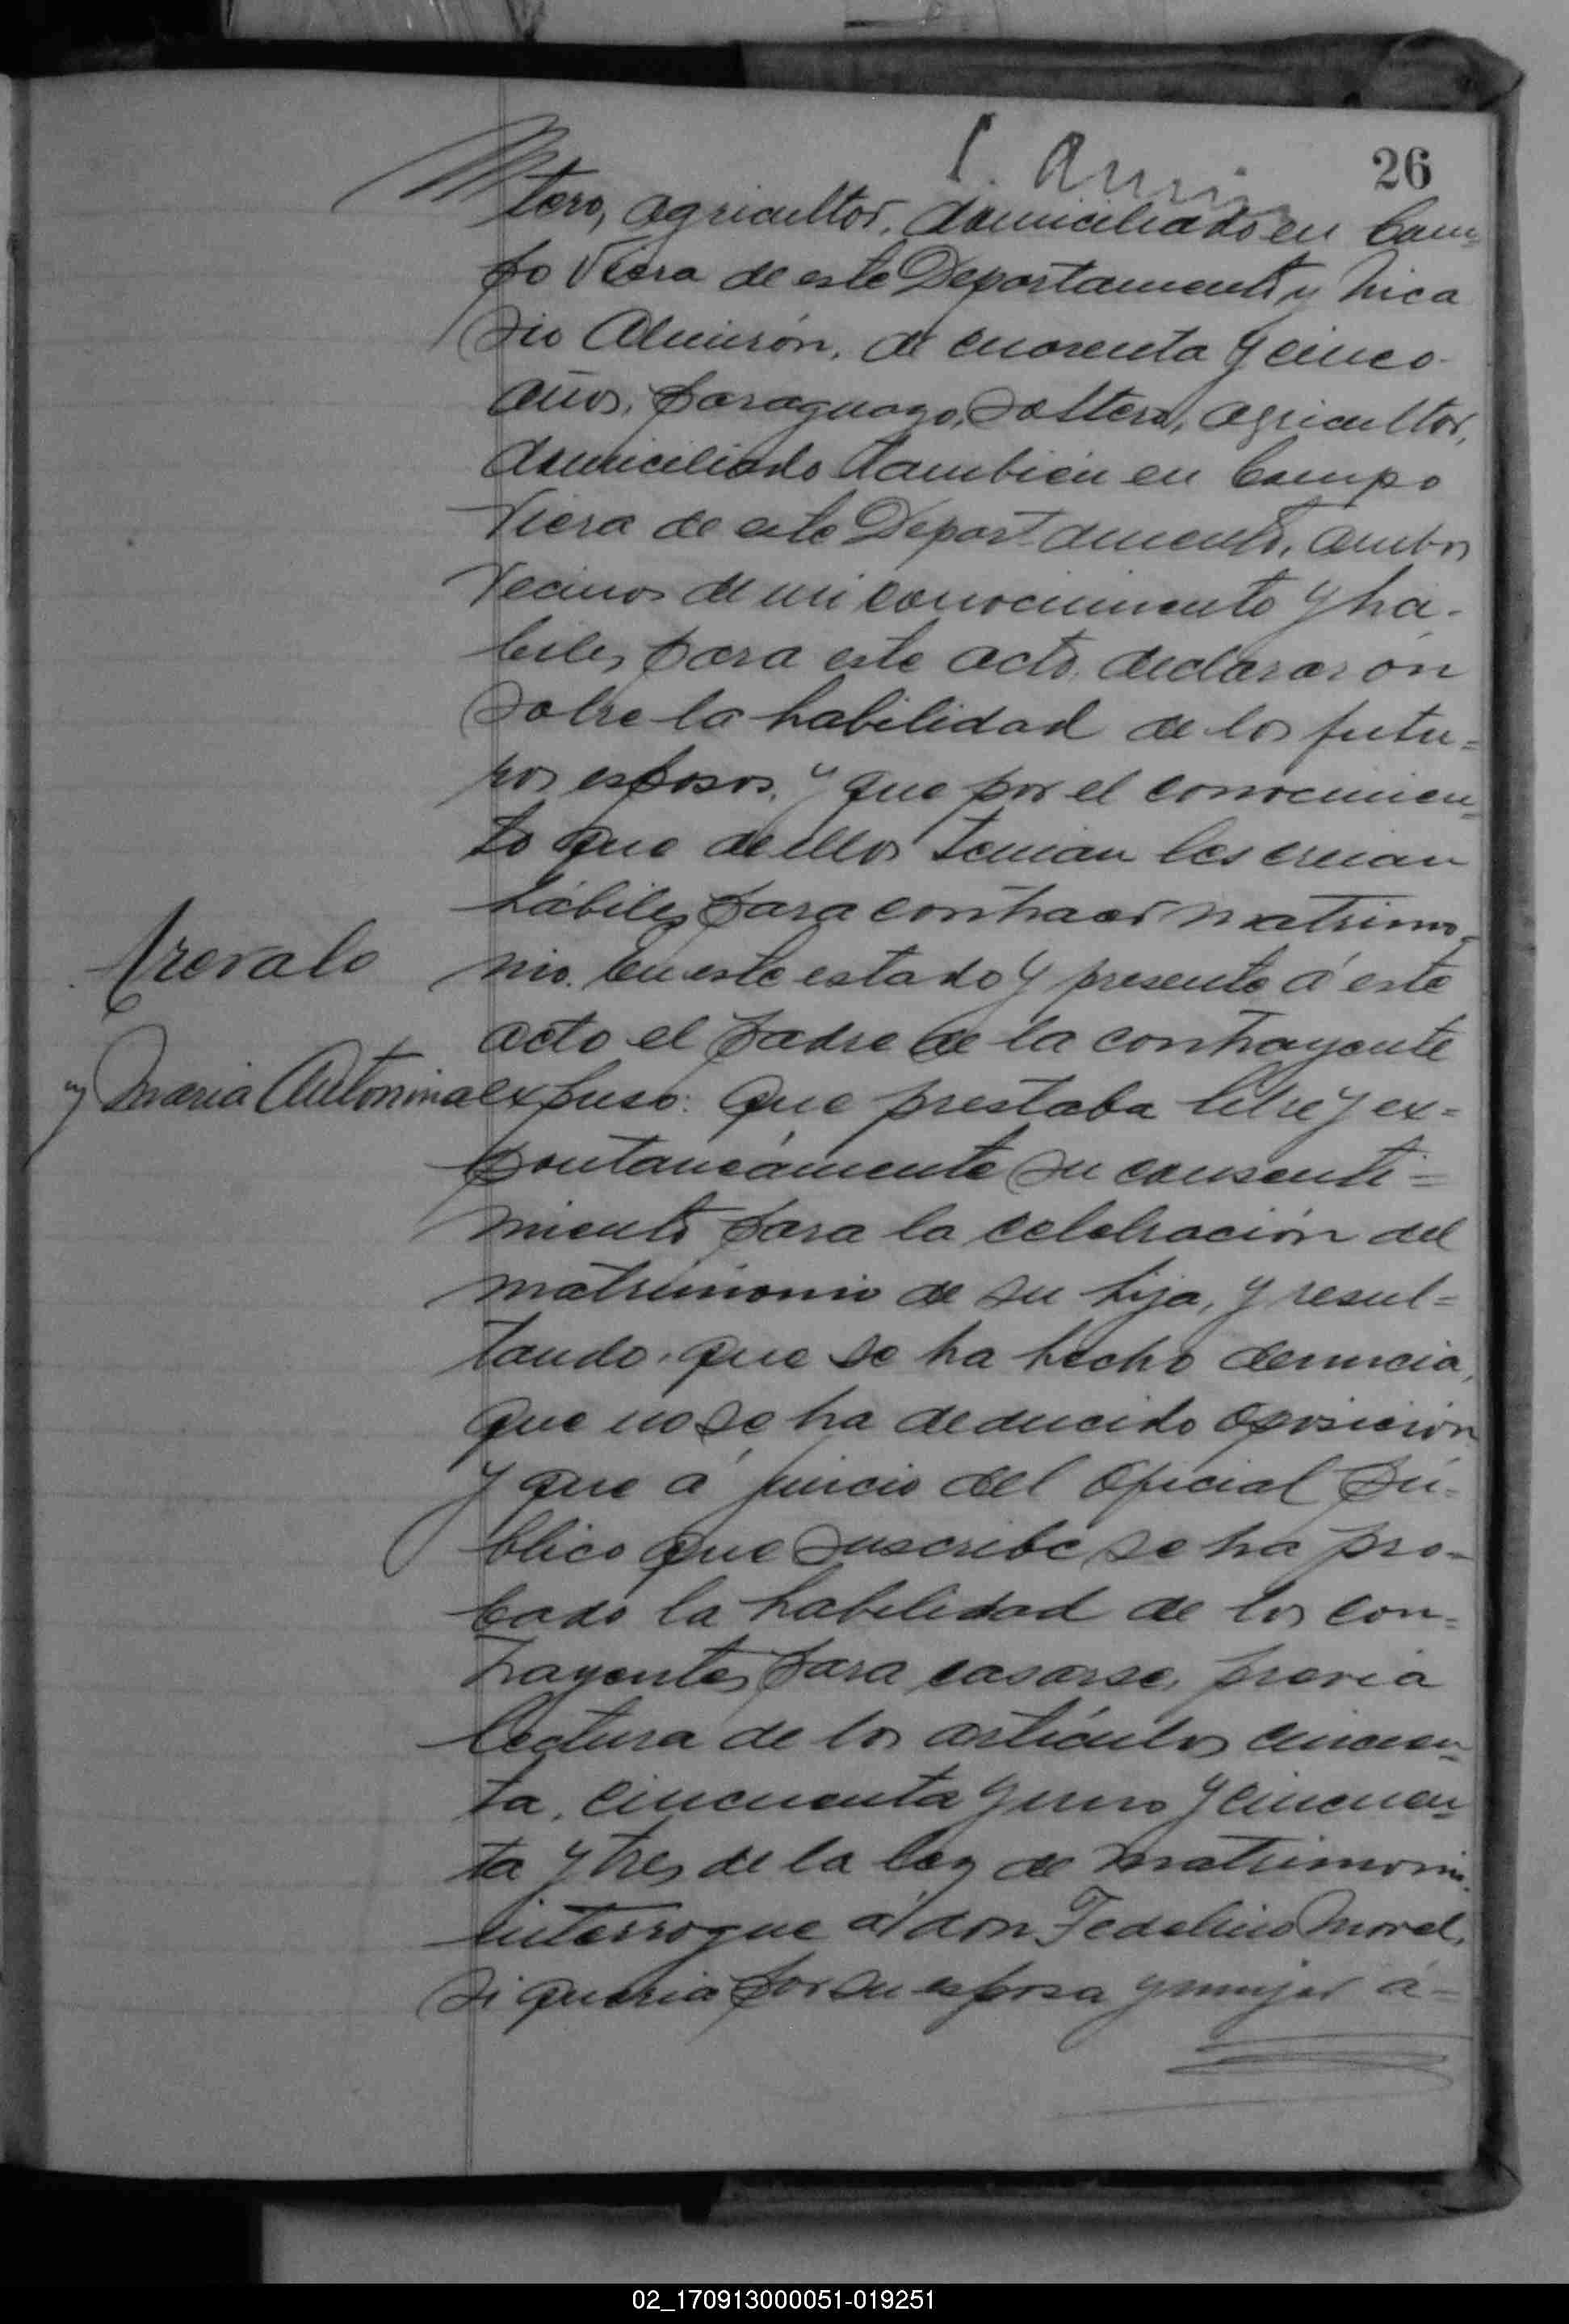 26
tero, agricultor, domiciliado en Cam-
po Viera de este Departamento y Nica
sio Almirón, de cuarenta y cinco
años, paraguayo, soltero, agricultor,
domiciliado tambien en Campo
Viera de este Departamento, ambos
vecinos de mi conocimiento y há-
biles para este acto, declararon
sobre la habilidad de los futu=
ros esposos, y que por el conocimien=
to que de ellos tenian les creian
hábiles para contraer matrimo-
nio. En este estado y presente á este
acto el padre de la contrayente
expuso: que prestaba libre y ex=
pontaneámente su consenti=
miento para la celebración del
matrimonio de su hija, y resul=
tando que se ha hecho denuncia,
que no se ha deducido oposición
y que á juicio del oficial pú-
blico que suscribe se ha pro-
bado la habilidad de los con=
trayentes para casarse, previa
lectura de los artículos cincuen=
ta, cincuenta y uno y cincuen=
ta y tres de la ley de matrimonio
interrogue á don Fedelino Morel,
si queria por su esposa y mujer á=
Arevalo
y Maria Antonina
02_170913000051-019251